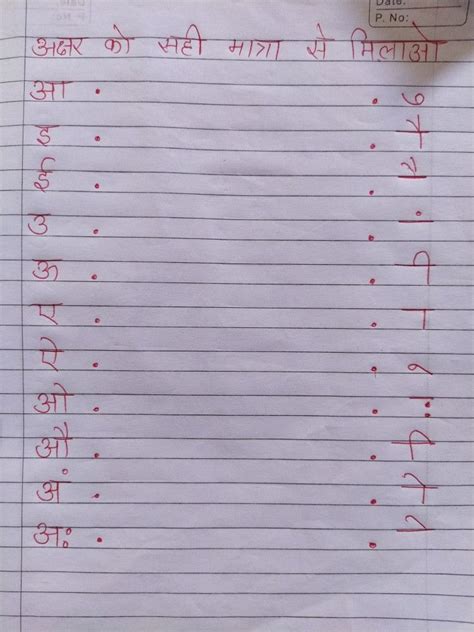 Date:
P. No:
अक्षर को सही मात्रा से मिलाओ
आ . . ु
इ . . ै
ई . . ौ
उ . . ं
ऊ . . ी
ए . . ा
ऐ . . ू
ओ . . ः
औ . . ि
अं . . ो
अः . . े